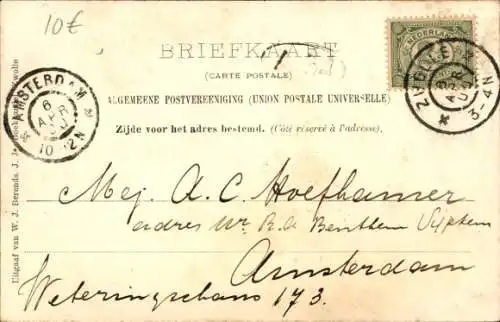 10€
BRIEFKAART
(CARTE POSTALE)
ALGEMEENE POSTVEREENIGING (UNION POSTALE UNIVERSELLE)
Zijde voor het adres bestemd. (Côté réservé à l'adresse).
NEDERLAND
ZWOLLE
3-4N
AMSTERDAM
6
APR
10-12N
Mej. A. C. Hoefhamer
adres Mr. R. A. Benthem
Amsterdam
Weteringschans 173.
Uitgaaf van W. J. Berends, J.